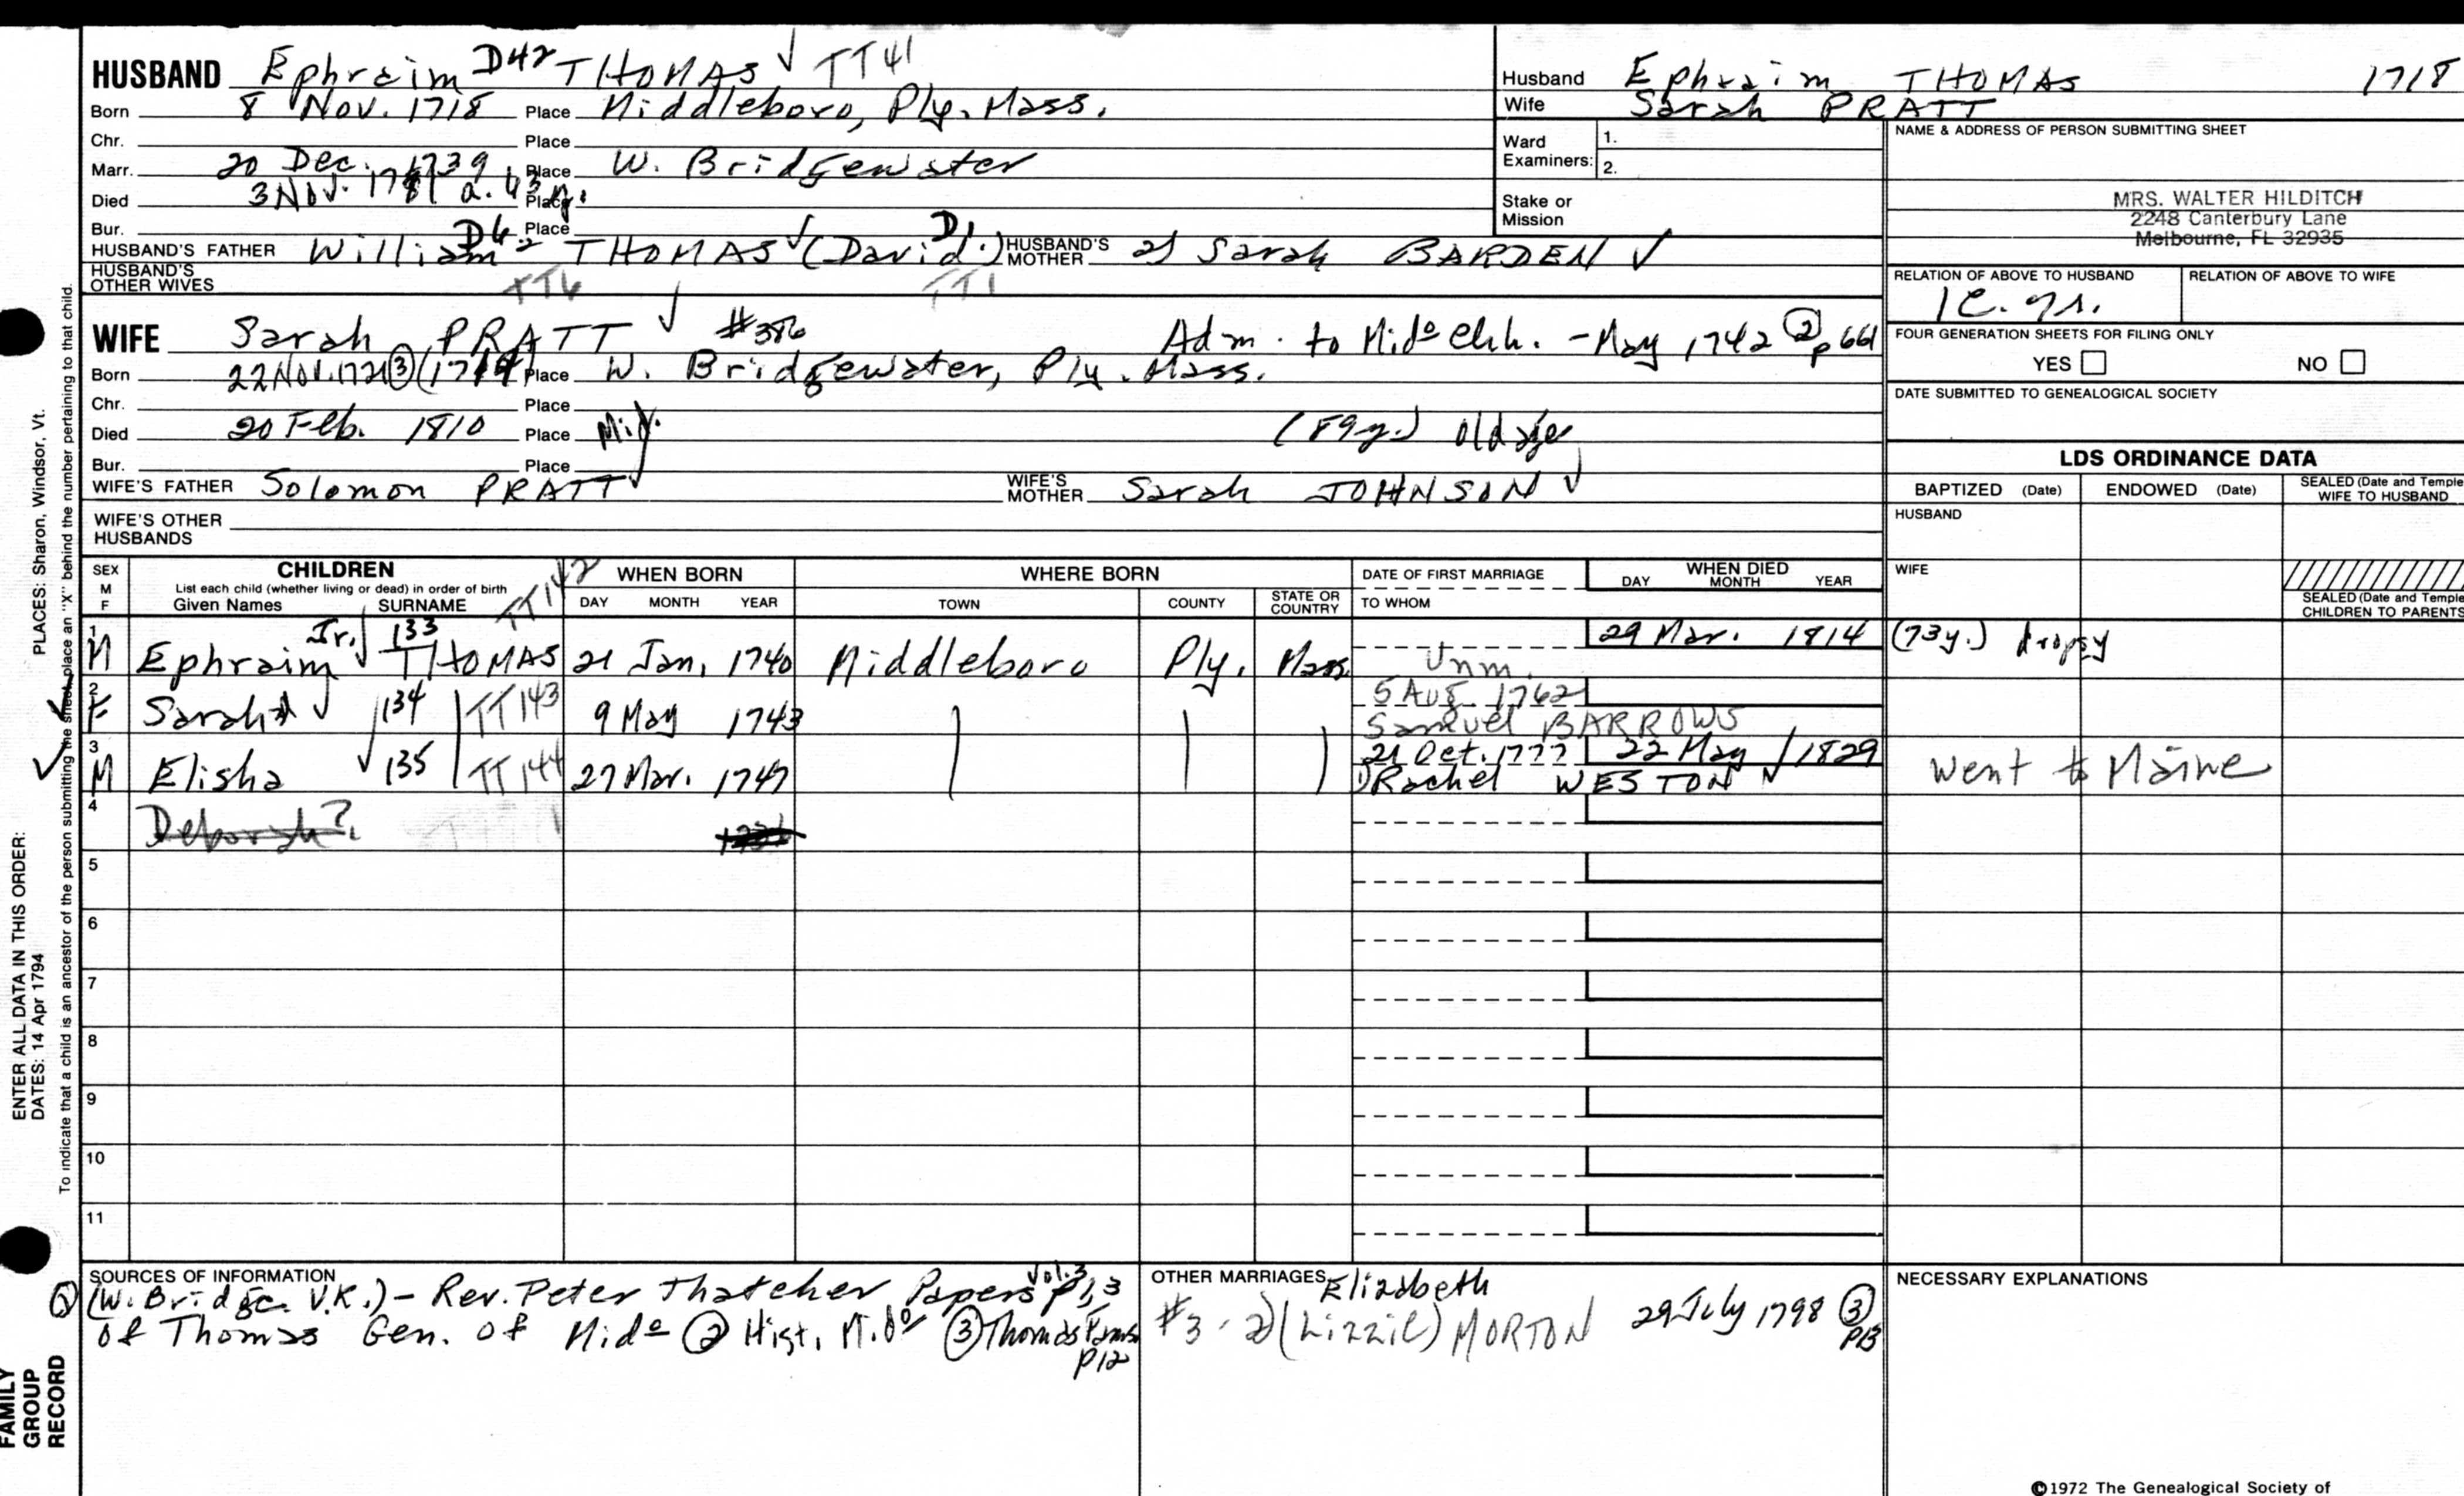 HUSBAND Ephraim D42 THOMAS √ TT41
Born 8 Nov. 1718 Place Middleboro, Ply. Mass.
Chr. Place
Marr. 20 Dec. 1739 Place W. Bridgewater
Died 3 Nov. 1761 a. 43 y. Place
Bur. Place
HUSBAND'S FATHER William D6 THOMAS √ (David D1.) HUSBAND'S MOTHER 2) Sarah BARDEN √
HUSBAND'S OTHER WIVES TT6 TT1
WIFE Sarah PRATT √ #386 Adm. to Mido Chh. - May 1742 ② p 661
Born 22 Nov. 1721 ③ Place W. Bridgewater, Ply. Mass.
Chr. Place
Died 20 Feb. 1810 Place Mid. (89y.) old age
Bur. Place
WIFE'S FATHER Solomon PRATT √ WIFE'S MOTHER Sarah JOHNSON √
WIFE'S OTHER HUSBANDS
Husband Ephraim THOMAS 1718
Wife Sarah PRATT
Ward Examiners: 1.
2.
Stake or Mission
NAME & ADDRESS OF PERSON SUBMITTING SHEET
MRS. WALTER HILDITCH
2248 Canterbury Lane
Melbourne, FL 32935
RELATION OF ABOVE TO HUSBAND RELATION OF ABOVE TO WIFE
FOUR GENERATION SHEETS FOR FILING ONLY
YES □ NO □
DATE SUBMITTED TO GENEALOGICAL SOCIETY
LDS ORDINANCE DATA
BAPTIZED (Date) ENDOWED (Date) SEALED (Date and Temple) WIFE TO HUSBAND
HUSBAND
WIFE
SEALED (Date and Temple) CHILDREN TO PARENTS
SEX M F CHILDREN WHEN BORN WHERE BORN DATE OF FIRST MARRIAGE WHEN DIED
List each child (whether living or dead) in order of birth DAY MONTH YEAR
Given Names SURNAME TT142 DAY MONTH YEAR TOWN COUNTY STATE OR COUNTRY TO WHOM
1 M Ephraim Jr. √ 133 THOMAS 21 Jan. 1740 Middleboro Ply. Mass. Unm. 29 Mar. 1814 (73y.) dropsy
2 F Sarah √ 134 TT143 9 May 1743 5 Aug. 1762
Samuel BARROWS
3 M Elisha √ 135 TT144 27 Mar. 1747 21 Oct. 1777 22 May 1829 went to Maine
1) Rachel WESTON √
4 Deborah?
5
6
7
8
9
10
11
SOURCES OF INFORMATION
(W. Bridge. V.R.) - Rev. Peter Thatcher Papers Vol. 3 p 1, 3
of Thomas Gen. of Mido ② Hist. Mido ③ Thomas Fams.
p12
OTHER MARRIAGES Elizabeth
#3 - 2) (Lizzie) MORTON 29 July 1798 ③ p13
NECESSARY EXPLANATIONS
©1972 The Genealogical Society of
PLACES: Sharon, Windsor, Vt.
ENTER ALL DATA IN THIS ORDER:
DATES: 14 Apr 1794
To indicate that a child is an ancestor of the person submitting the sheet, place an "X" behind the number pertaining to that child.
FAMILY GROUP RECORD